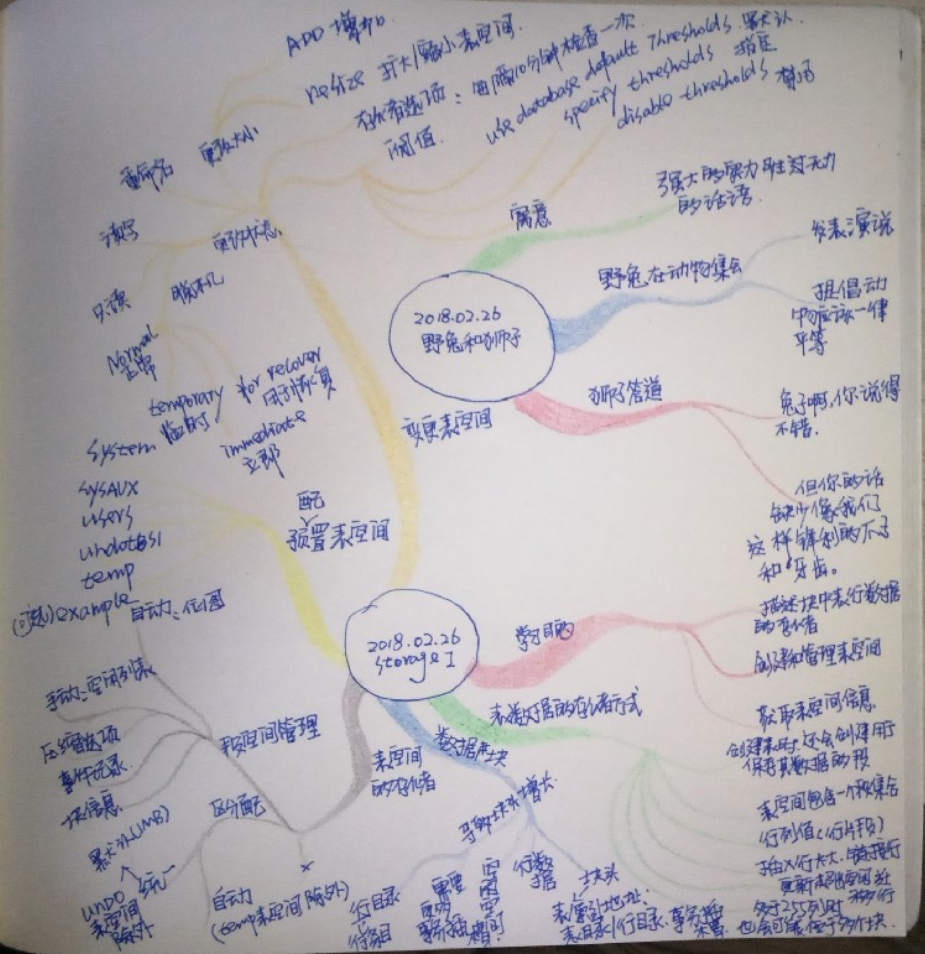 ADD 增加
resize 扩大/缩小表空间.
存储选项：每隔10分钟检查一次
阀值.
use database default thresholds. 默认.
specify thresholds 指定
disable thresholds 禁用
重命名 更改大小
读写 更改状态
只读 脱机
Normal
正常
temporary
临时
for recover
用于恢复
immediate
立即
变更表空间
2018.02.26
野兔和狮子
寓意
强大的实力胜过无力
的话语.
野兔在动物集会
发表演说
提倡动
物应该一律
平等
狮子管道
兔子啊,你说得
不错.
但你的话
缺少像我们
这样锋利的爪子
和牙齿。
system
sysAUX
users
undotbs1
temp
(可选)example
配
预置表空间
2018.02.26
storage I
学习目的
描述块中表行数据
的存储
创建和管理表空间
获取表空间信息
表数据的存储方式
创建表时,还会创建用
保存其数据的段
表空间包含一个段集合
行列值(行片段)
插入行太大.链接行
多于255列时
也会可能位于多个块.
数据库块
块头
表/索引地址.
行数
据
行目录
表空间
的存储
段空间管理
自动:位图
手动:空闲列表
压缩选项
事件记录
块信息
区分配
默认(1MB)
统一
undo
表空间
除外
自动
(temp表空间除外)